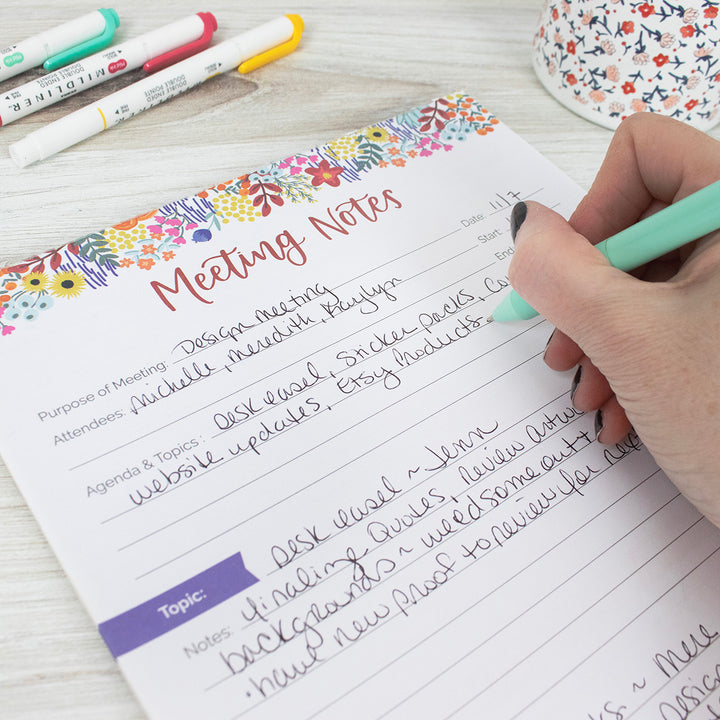 MILDLINER
DOUBLE ENDED
Meeting Notes
Date: 11/7
Start:
End
Purpose of Meeting: Design Meeting
Attendees: Michelle, Meredith, Kaylyn
Agenda & Topics: Desk easel, Sticker packs,
website updates, Etsy Products
Topic: Desk easel ~ Jenn
Notes: finaling Quotes, review
backgrounds ~ weed some out +
· have new proof to review for next
~ Mere